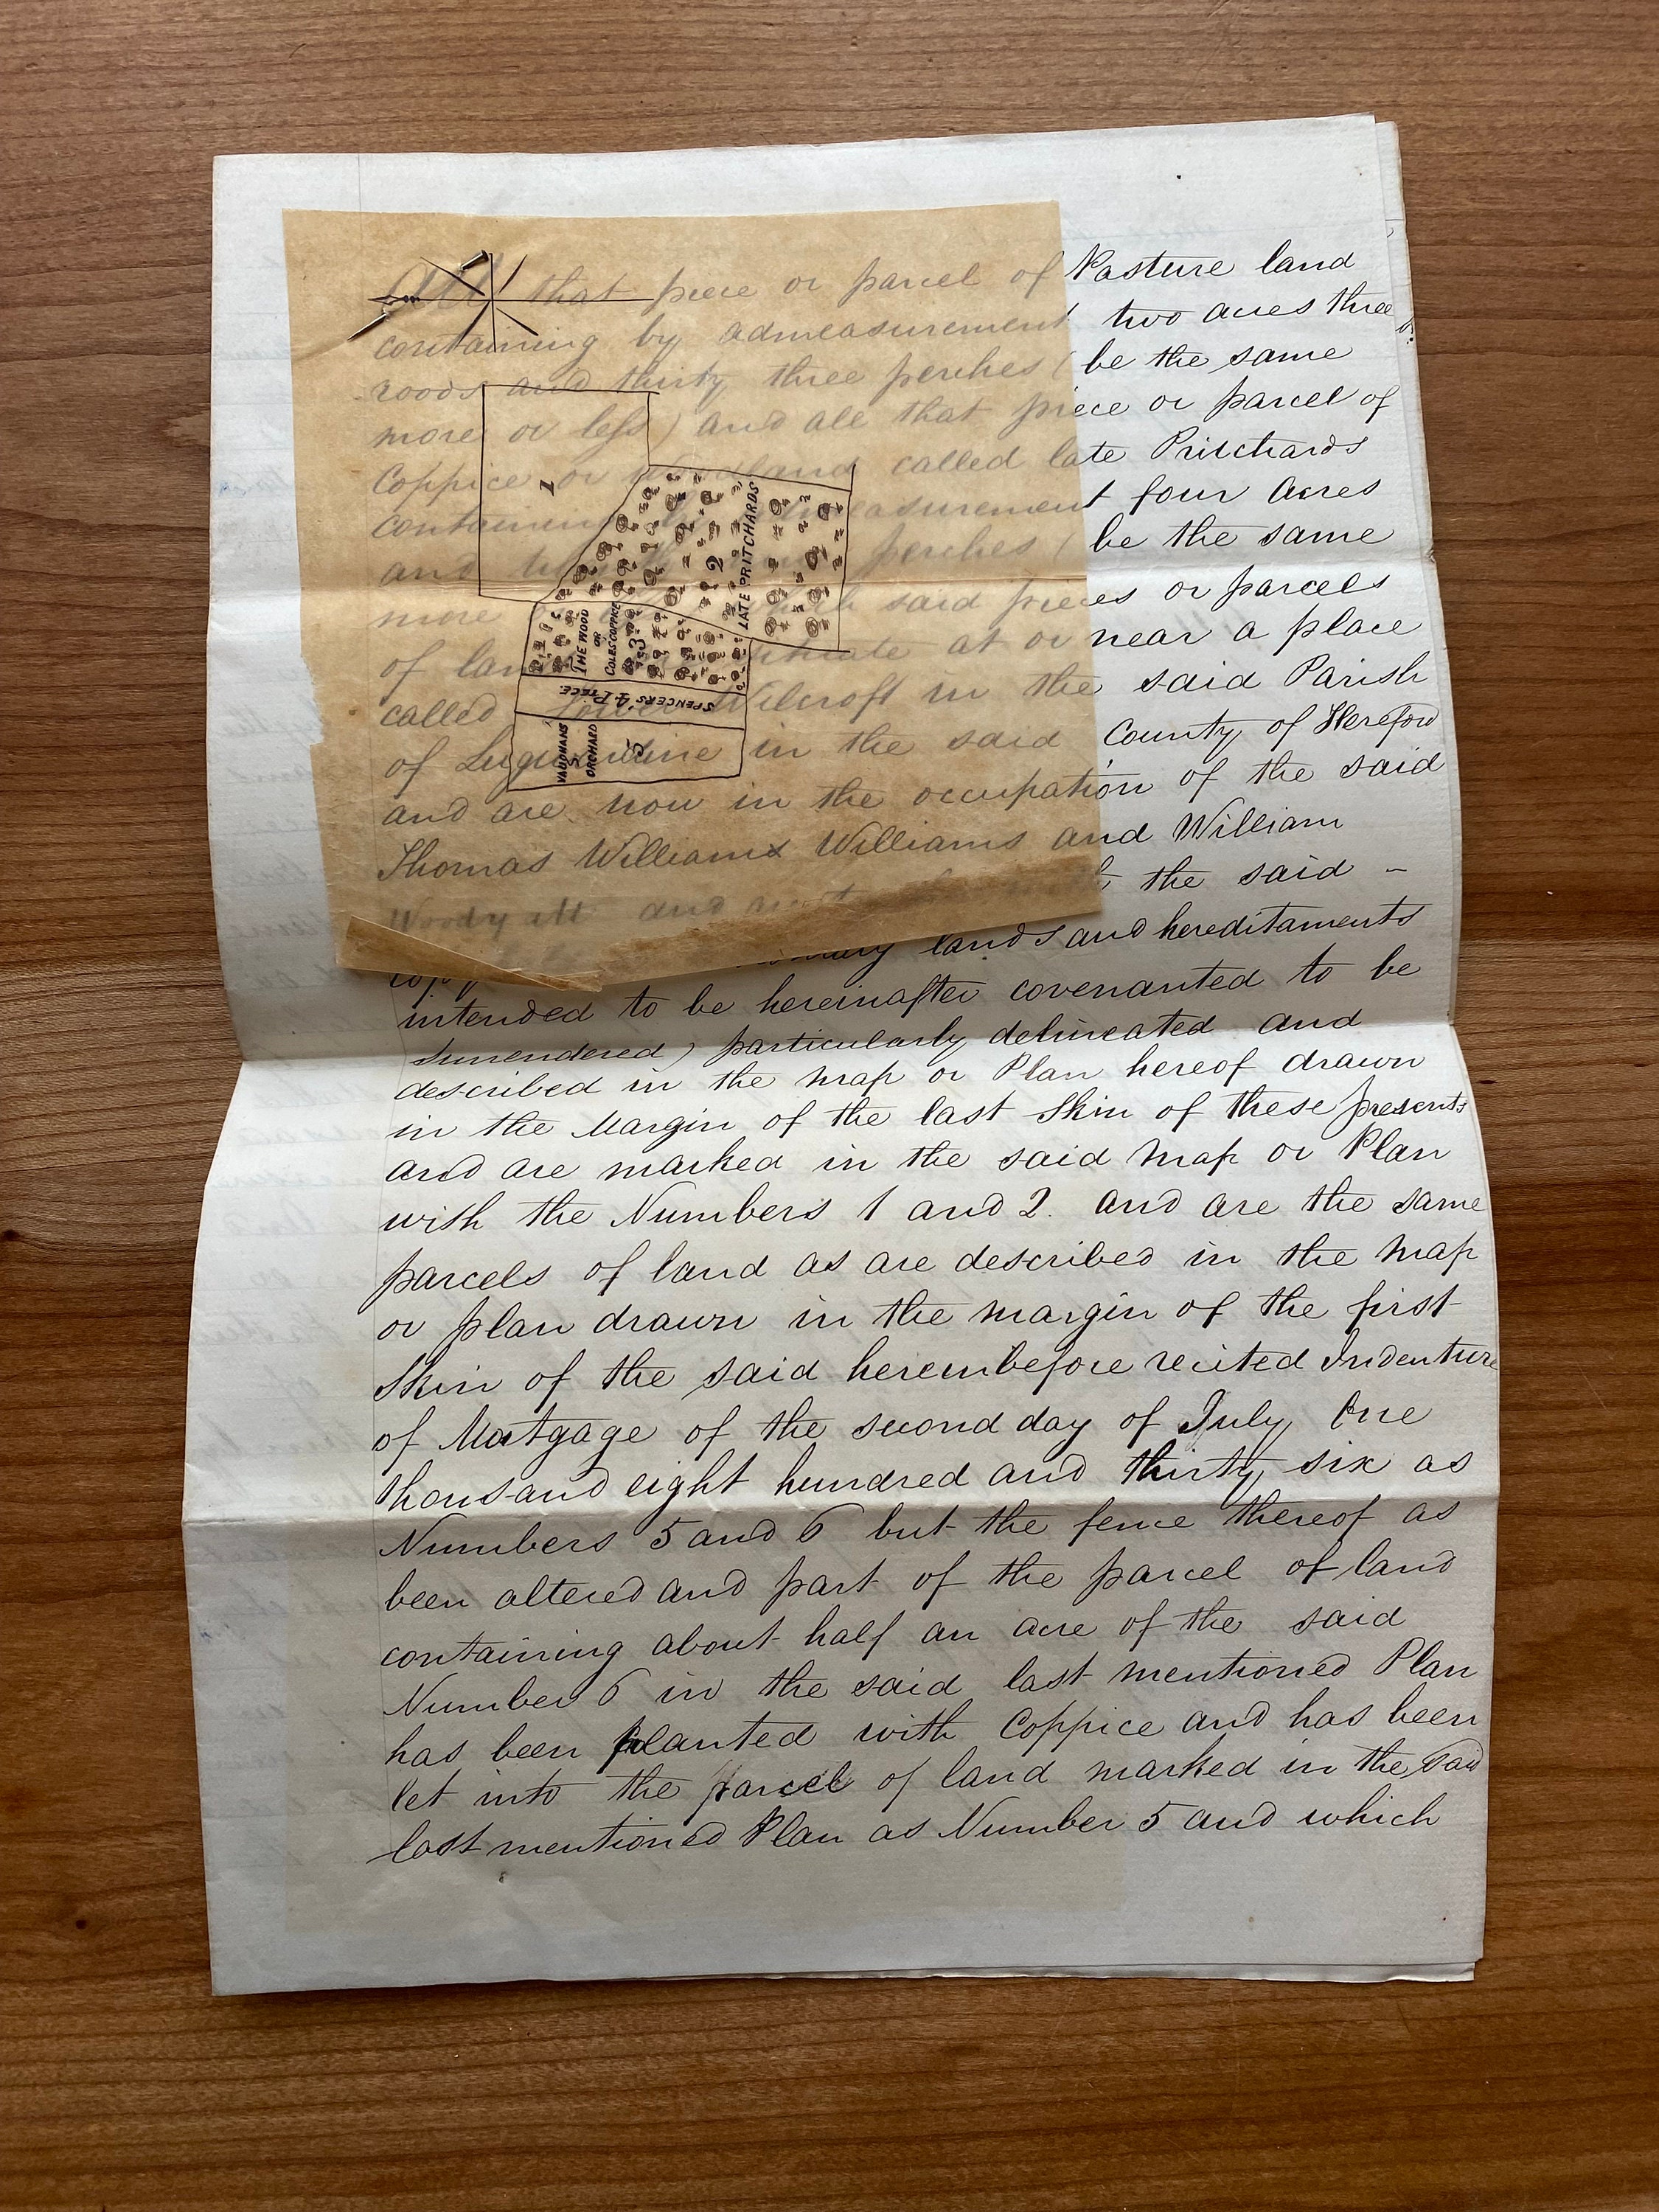 All that piece or parcel of Pasture land
containing by admeasurement two acres three
roods and thirty three perches (be the same
more or less) and all that piece or parcel of
Coppice or land called late Pritchards
containing admeasurement four Acres
and perches (be the same
more said pieces or parcels
of situate at or near a place
called Lower Wilcroft in the said Parish
of Lugwardine in the said County of Hereford
and are now in the occupation of the said
Thomas Williams Williams and William
Woodyatt and the said -
lands and hereditaments
intended to be hereinafter covenanted to be
surrendered) particularly delineated and
described in the map or Plan hereof drawn
in the Margin of the last Skin of these presents
and are marked in the said map or Plan
with the Numbers 1 and 2. and are the same
parcels of land as are described in the map
or plan drawn in the margin of the first
Skin of the said hereinbefore recited Indenture
of Matgage of the second day of July One
thousand eight hundred and thirty six as
Numbers 5 and 6 but the fence thereof as
been altered and part of the parcel of land
containing about half an acre of the said
Number 6 in the said last mentioned Plan
has been planted with Coppice and has been
let into the parcel of land marked in the said
last mentioned Plan as Number 5 and which
1
2
LATE PRITCHARDS
THE WOOD
OR
COLES COPPICE
3
SPENCER'S 4 PIECE
VAUGHANS
ORCHARD
5